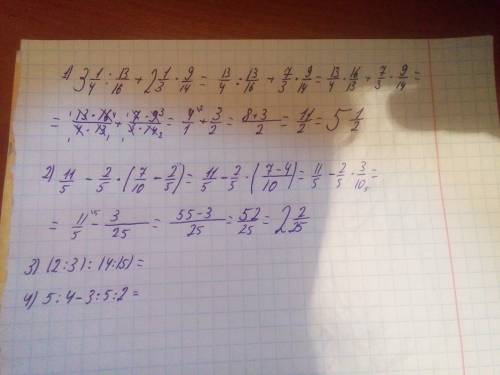 1) 3 1/4 : 13/16 + 2 1/3 · 9/14 = 13/4 : 13/16 + 7/3 · 9/14 = 13/4 · 16/13 + 7/3 · 9/14 =
= 13 · 16/4 · 13 + 7 · 9/3 · 14 = 4/1 + 3/2 = 8+3/2 = 11/2 = 5 1/2
2) 11/5 - 2/5 · (7/10 - 2/5) = 11/5 - 2/5 · (7-4/10) = 11/5 - 2/5 · 3/10 =
= 11/5 - 3/25 = 55-3/25 = 52/25 = 2 2/25
3) (2:3) : (4:15) =
4) 5:4-3:5:2=